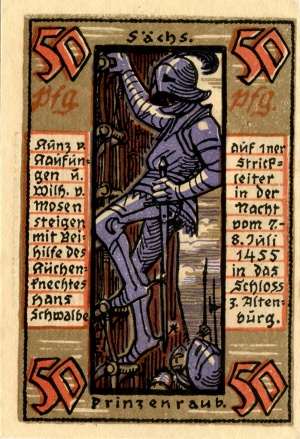 50 Sächs. 50
Pfg. Pfg.
Kunz v.
Kaufun-
gen u.
Wilh. v.
Mosen
steigen
mit Bei-
hilfe des
Küchen-
knechtes
Hans
Schwalbe
auf 1ner
Strick-
leiter
in der
Nacht
vom 7.-
8. Juli
1455
in das
Schloss
z. Alten-
burg.
50 Prinzenraub. 50